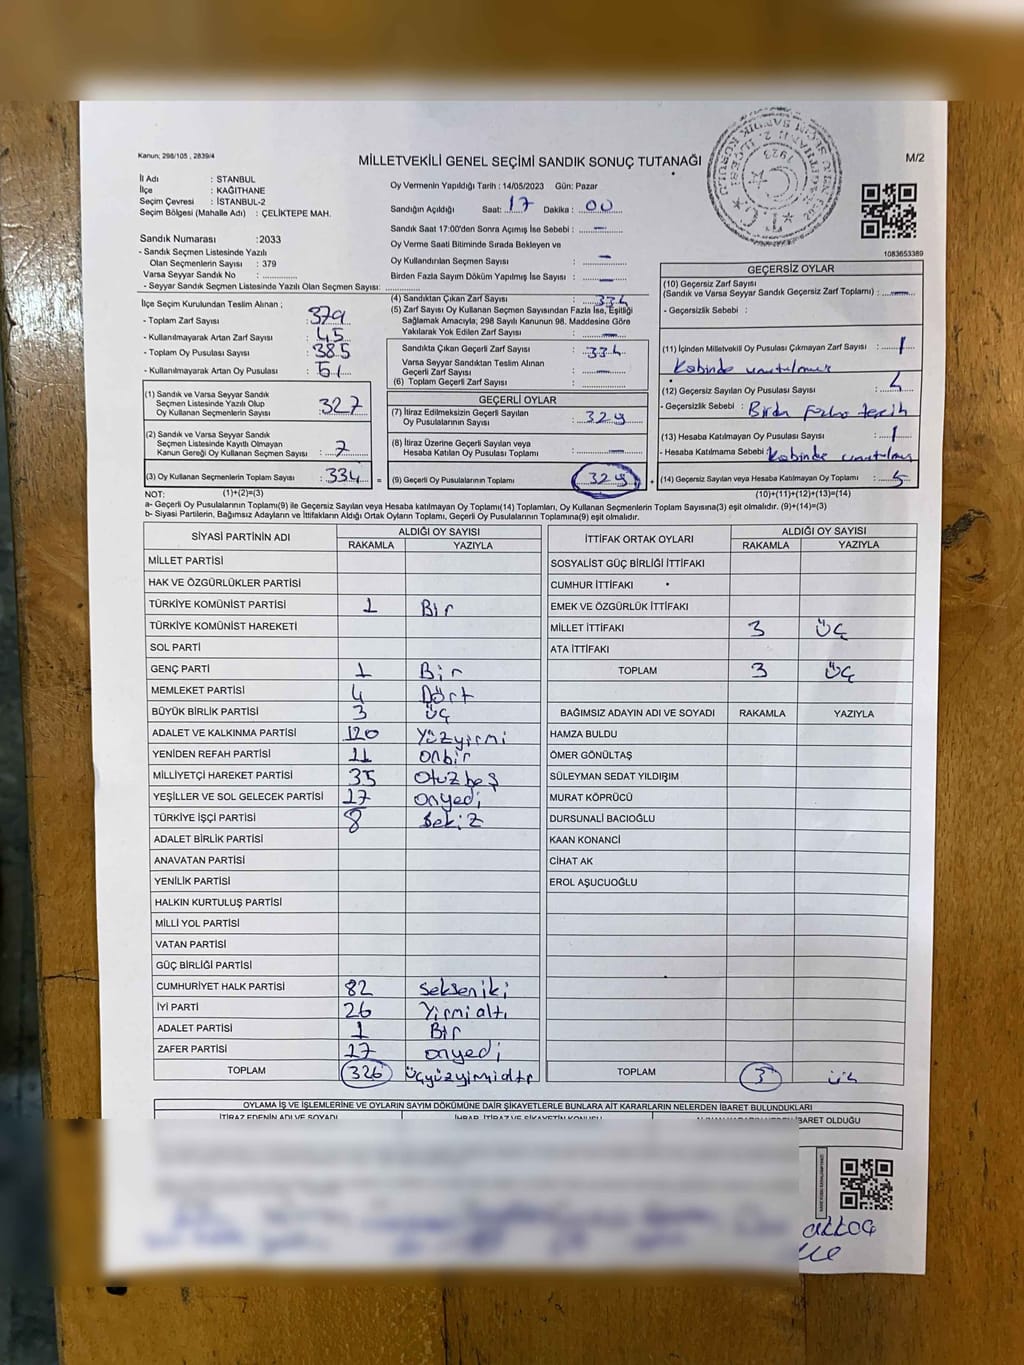 Kanun; 298/105 , 2839/4
MİLLETVEKİLİ GENEL SEÇİMİ SANDIK SONUÇ TUTANAĞI
M/2
İl Adı : İSTANBUL
İlçe : KAĞITHANE
Seçim Çevresi : İSTANBUL-2
Seçim Bölgesi (Mahalle Adı) : ÇELİKTEPE MAH.
Sandık Numarası :2033
- Sandık Seçmen Listesinde Yazılı
Olan Seçmenlerin Sayısı : 379
Varsa Seyyar Sandık No :
- Seyyar Sandık Seçmen Listesinde Yazılı Olan Seçmen Sayısı:
Oy Vermenin Yapıldığı Tarih : 14/05/2023 Gün: Pazar
Sandığın Açıldığı Saat: 17 Dakika : 00
Sandık Saat 17:00'den Sonra Açımış İse Sebebi : —
Oy Verme Saati Bitiminde Sırada Bekleyen ve
Oy Kullandırılan Seçmen Sayısı : —
Birden Fazla Sayım Döküm Yapılmış İse Sayısı : —
1083653389
İlçe Seçim Kurulundan Teslim Alınan ;
- Toplam Zarf Sayısı : 379
- Kullanılmayarak Artan Zarf Sayısı : 45
- Toplam Oy Pusulası Sayısı : 385
- Kullanılmayarak Artan Oy Pusulası : 51
(1) Sandık ve Varsa Seyyar Sandık
Seçmen Listesinde Yazılı Olup
Oy Kullanan Seçmenlerin Sayısı : 327
(2) Sandık ve Varsa Seyyar Sandık
Seçmen Listesinde Kayıtlı Olmayan
Kanun Gereği Oy Kullanan Seçmen Sayısı : 7
(3) Oy Kullanan Seçmenlerin Toplam Sayısı : 334 =
(4) Sandıktan Çıkan Zarf Sayısı : 334
(5) Zarf Sayısı Oy Kullanan Seçmen Sayısından Fazla İse, Eşitliği
Sağlamak Amacıyla, 298 Sayılı Kanunun 98. Maddesine Göre
Yakılarak Yok Edilen Zarf Sayısı : —
Sandıkta Çıkan Geçerli Zarf Sayısı : 334
Varsa Seyyar Sandıktan Teslim Alınan
Geçerli Zarf Sayısı : —
(6) Toplam Geçerli Zarf Sayısı :
GEÇERLİ OYLAR
(7) İtiraz Edilmeksizin Geçerli Sayılan
Oy Pusulalarının Sayısı : 329
(8) İtiraz Üzerine Geçerli Sayılan veya
Hesaba Katılan Oy Pusulası Toplamı : —
(9) Geçerli Oy Pusulalarının Toplamı : 329 +
GEÇERSİZ OYLAR
(10) Geçersiz Zarf Sayısı
(Sandık ve Varsa Seyyar Sandık Geçersiz Zarf Toplamı) : —
- Geçersizlik Sebebi :
(11) İçinden Milletvekili Oy Pusulası Çıkmayan Zarf Sayısı : 1
Kabinde unutulmuş
(12) Geçersiz Sayılan Oy Pusulası Sayısı : 4
- Geçersizlik Sebebi : Birden fazla tercih
(13) Hesaba Katılmayan Oy Pusulası Sayısı : 1
- Hesaba Katılmama Sebebi : Kabinde unutulmuş
(14) Geçersiz Sayılan veya Hesaba Katılmayan Oy Toplamı : 5
NOT: (1)+(2)=(3) (10)+(11)+(12)+(13)=(14)
a- Geçerli Oy Pusulalarının Toplamı(9) ile Geçersiz Sayılan veya Hesaba katılmayan Oy Toplamı(14) Toplamları, Oy Kullanan Seçmenlerin Toplam Sayısına(3) eşit olmalıdır. (9)+(14)=(3)
b- Siyasi Partilerin, Bağımsız Adayların ve İttifakların Aldığı Ortak Oyların Toplamı, Geçerli Oy Pusulalarının Toplamına(9) eşit olmalıdır.
SİYASİ PARTİNİN ADI ALDIĞI OY SAYISI
RAKAMLA YAZIYLA
MİLLET PARTİSİ
HAK VE ÖZGÜRLÜKLER PARTİSİ
TÜRKİYE KOMÜNİST PARTİSİ 1 Bir
TÜRKİYE KOMÜNİST HAREKETİ
SOL PARTİ
GENÇ PARTİ 1 Bir
MEMLEKET PARTİSİ 4 Dört
BÜYÜK BİRLİK PARTİSİ 3 üç
ADALET VE KALKINMA PARTİSİ 120 Yüzyirmi
YENİDEN REFAH PARTİSİ 11 onbir
MİLLİYETÇİ HAREKET PARTİSİ 35 Otuzbeş
YEŞİLLER VE SOL GELECEK PARTİSİ 17 onyedi
TÜRKİYE İŞÇİ PARTİSİ 8 Sekiz
ADALET BİRLİK PARTİSİ
ANAVATAN PARTİSİ
YENİLİK PARTİSİ
HALKIN KURTULUŞ PARTİSİ
MİLLİ YOL PARTİSİ
VATAN PARTİSİ
GÜÇ BİRLİĞİ PARTİSİ
CUMHURİYET HALK PARTİSİ 82 Sekseniki
İYİ PARTİ 26 Yirmialtı
ADALET PARTİSİ 1 Bir
ZAFER PARTİSİ 17 onyedi
TOPLAM 326 üçyüzyirmialtı
İTTİFAK ORTAK OYLARI ALDIĞI OY SAYISI
RAKAMLA YAZIYLA
SOSYALİST GÜÇ BİRLİĞİ İTTİFAKI
CUMHUR İTTİFAKI
EMEK VE ÖZGÜRLÜK İTTİFAKI
MİLLET İTTİFAKI 3 üç
ATA İTTİFAKI
TOPLAM 3 üç
BAĞIMSIZ ADAYIN ADI VE SOYADI RAKAMLA YAZIYLA
HAMZA BULDU
ÖMER GÖNÜLTAŞ
SÜLEYMAN SEDAT YILDIRIM
MURAT KÖPRÜCÜ
DURSUNALİ BACIOĞLU
KAAN KONANCİ
CİHAT AK
EROL AŞUCUOĞLU
TOPLAM 3 üç
OYLAMA İŞ VE İŞLEMLERİNE VE OYLARIN SAYIM DÖKÜMÜNE DAİR ŞİKAYETLERLE BUNLARA AİT KARARLARIN NELERDEN İBARET BULUNDUKLARI
İTİRAZ EDENİN ADI VE SOYADI
İHBAR, İTİRAZ VE ŞİKAYETİN KONUSU
İBARET OLDUĞU